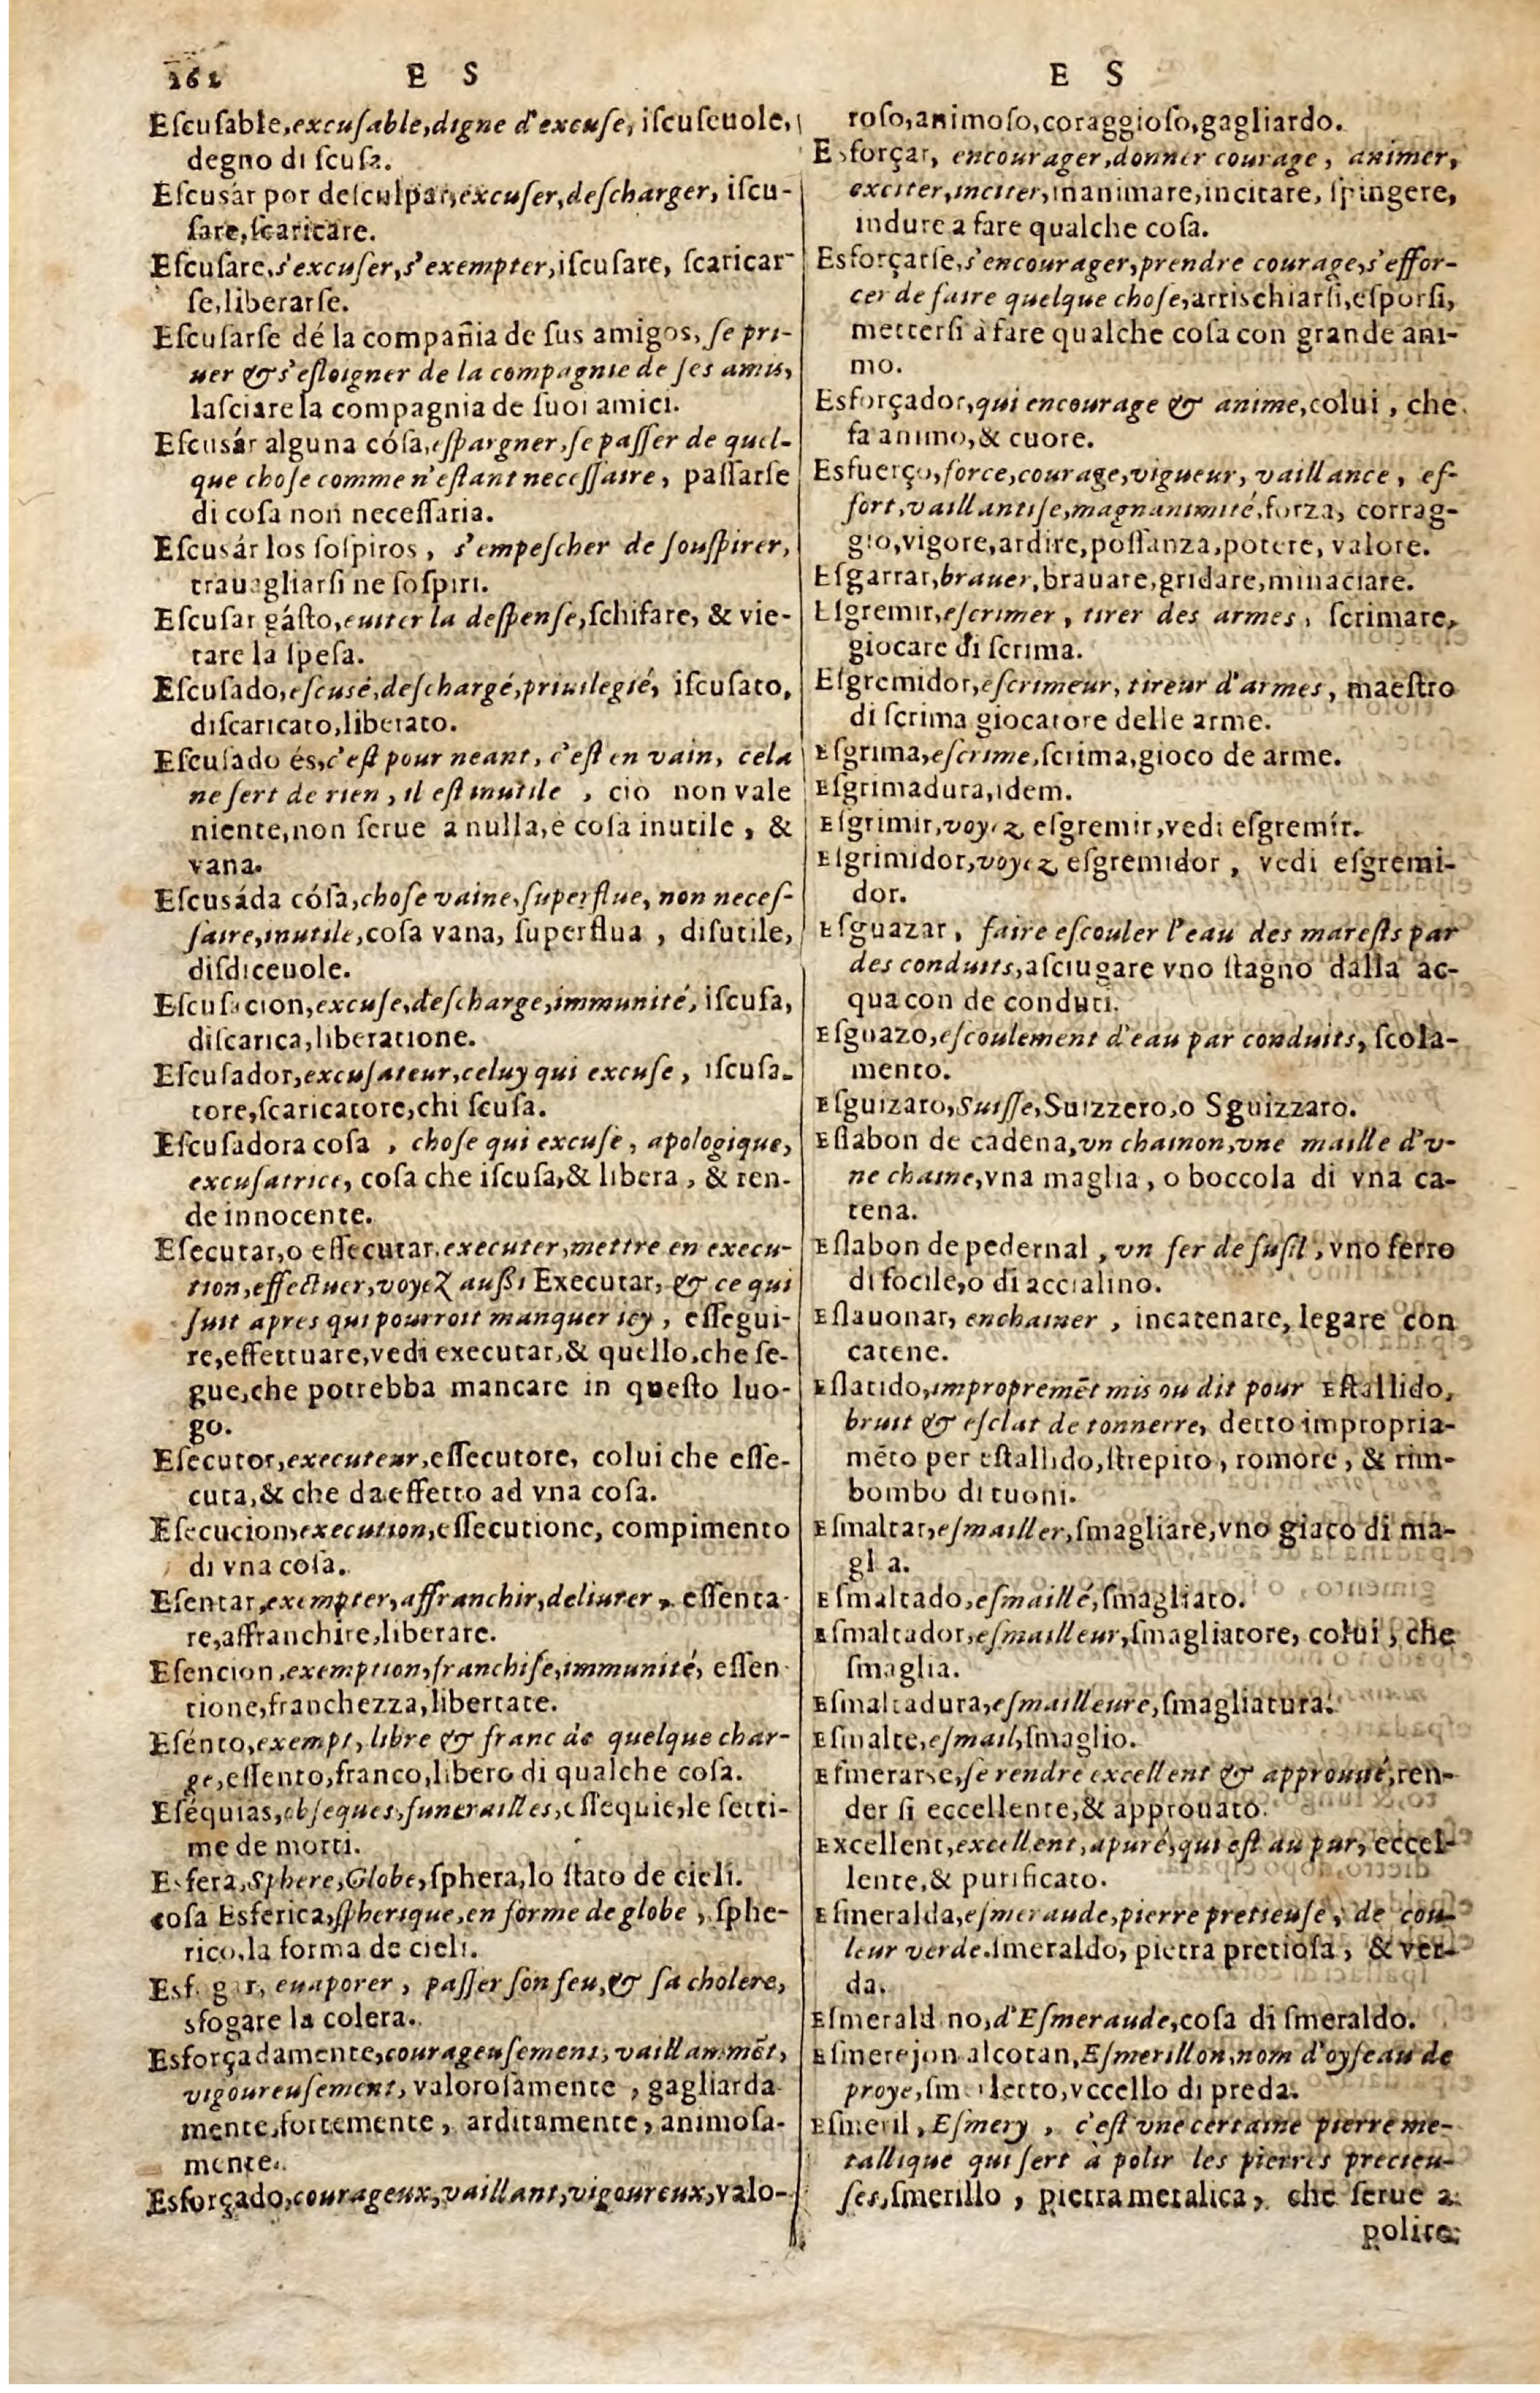 262 E S
E S
Eſcuſable,excuſable,digne d'excuſe, iſcuſeuole,
degno di ſcuſa.
Eſcusár por deſculpar,excuſer,deſcharger, iſcu-
ſare,ſcaricare.
Eſcuſare,s'excuſer,s'exempter,iſcuſare, ſcaricar-
ſe,liberarſe.
Eſcuſarſe dé la compañia de ſus amigos, ſe pri-
uer & s'eſloigner de la compagnie de ſes amis,
laſciare la compagnia de ſuoi amici.
Eſcusár alguna cóſa,eſpargner,ſe paſſer de quel-
que choſe comme n'eſtant neceſſaire, paſſarſe
di coſa non neceſſaria.
Eſcusár los ſoſpiros, s'empeſcher de ſouſpirer,
trauagliarſi ne ſoſpiri.
Eſcuſar gáſto,euiter la deſpenſe,ſchifare, & vie-
tare la ſpeſa.
Eſcuſado,eſcusé,deſchargé,priuilegié, iſcuſato,
diſcaricato,liberato.
Eſcuſado és,c'eſt pour neant, c'eſt en vain, cela
ne ſert de rien, il eſt inutile , cio non vale
niente,non ſerue a nulla,e coſa inutile, &
vana.
Eſcusáda cóſa,choſe vaine,ſuperflue, non neceſ-
ſaire,inutile,coſa vana, ſuperflua , diſutile,
diſdiceuole.
Eſcuſacion,excuſe,deſcharge,immunité, iſcuſa,
diſcarica,liberatione.
Eſcuſador,excuſateur,celuy qui excuſe, iſcuſa-
tore,ſcaricatore,chi ſcuſa.
Eſcuſadora coſa , choſe qui excuſe, apologique,
excuſatrice, coſa che iſcuſa,& libera, & ren-
de innocente.
Eſecutar,o eſſecutar,executer,mettre en execu-
tion,effectuer,voyez außi Executar, & ce qui
ſuit apres qui pourroit manquer icy, eſſegui-
re,effettuare,vedi executar,& quello,che ſe-
gue,che potrebba mancare in queſto luo-
go.
Eſecutor,executeur,eſſecutore, colui che eſſe-
cuta,& che da effetto ad vna coſa.
Eſecucion,execution,eſſecutione, compimento
di vna coſa.
Eſentar,exempter,affranchir,deliurer, eſſenta-
re,affranchire,liberare.
Eſencion,exemption,franchiſe,immunité, eſſen-
tione,franchezza,libertate.
Eſénto,exempt, libre & franc de quelque char-
ge,eſſento,franco,libero di qualche coſa.
Eſéquias,obſeques,funerailles,eſſequie,le ſetti-
me de morti.
Esfera,Sphere,Globe,ſphera,lo ſtato de cieli.
coſa Esferica,ſpherique,en forme de globe, ſphe-
rico,la forma de cieli.
Esf gar, euaporer, paſſer ſon feu,& ſa cholere,
sfogare la colera.
Esforçadamente,courageuſement, vaillammẽt,
vigoureuſement, valoroſamente, gagliarda-
mente,fortemente, arditamente, animoſa-
mente.
Esforçado,courageux,vaillant,vigoureux,valo-
roſo,animoſo,coraggioſo,gagliardo.
Esforçar, encourager,donner courage, animer,
exciter,inciter,inanimare,incitare, ſpingere,
indure a fare qualche coſa.
Esforçarſe,s'encourager,prendre courage,s'effor-
cer de faire quelque choſe,arriſchiarſi,eſporſi,
metterſi à fare qualche coſa con grande ani-
mo.
Esforçador,qui encourage & anime,colui, che
fa animo,& cuore.
Esfuerço,force,courage,vigueur, vaillance, ef-
fort,vaillantiſe,magnanimité,forza, corrag-
gio,vigore,ardire,poſſanza,potere, valore.
Eſgarrar,brauer,brauare,gridare,minaciare.
Eſgremir,eſcrimer, tirer des armes, ſcrimare,
giocare di ſcrima.
Eſgremidor,eſcrimeur, tireur d'armes, maeſtro
di ſcrima giocatore delle arme.
Eſgrima,eſcrime,ſcrima,gioco de arme.
Eſgrimadura,idem.
Eſgrimir,voyez eſgremir,vedi eſgremír.
Eſgrimidor,voyez eſgremidor, vedi eſgremi-
dor.
Eſguazar, faire eſcouler l'eau des mareſts par
des conduits,aſciugare vno ſtagno dalla ac-
qua con de conduti.
Eſguazo,eſcoulement d'eau par conduits, ſcola-
mento.
Eſguizaro,Suiſſe,Suizzero,o Sguizzaro.
Eſlabon de cadena,vn chainon,vne maille d'v-
ne chaine,vna maglia, o boccola di vna ca-
tena.
Eſlabon de pedernal, vn fer de fuſil, vno ferro
di focile,o di accialino.
Eſlauonar, enchainer , incatenare, legare con
catene.
Eſlatido,impropremẽt mis ou dit pour Eſtallido,
bruit & eſclat de tonnerre, detto impropria-
mẽto per eſtallido,ſtrepito, romore, & rim-
bombo di tuoni.
Eſmaltar,eſmailler,ſmagliare,vno giaco di ma-
gl a.
Eſmaltado,eſmaillé,ſmagliato.
Eſmaltador,eſmailleur,ſmagliatore, colui, che
ſmaglia.
Eſmaltadura,eſmailleure,ſmagliatura.
Eſmalte,eſmail,ſmaglio.
Eſmerarse,ſe rendre excellent & approuué,ren-
der ſi eccellente,& approuato.
Excellent,excellent,apuré,qui eſt au pur, eccel-
lente,& purificato.
Eſmeralda,eſmeraude,pierre pretieuſe, de cou-
leur verde.ſmeraldo, pietra pretioſa, & ver-
da.
Eſmerald no,d'Eſmeraude,coſa di ſmeraldo.
Eſmerejon alcotan,Eſmerillon,nom d'oyſeau de
proye, vccello di preda.
Eſmeril, Eſmery , c'eſt vne certaine pierre me-
tallique qui ſert à polir les pierres precieu-
ſes,ſmerillo, pietra metalica, che ſerue a
polire